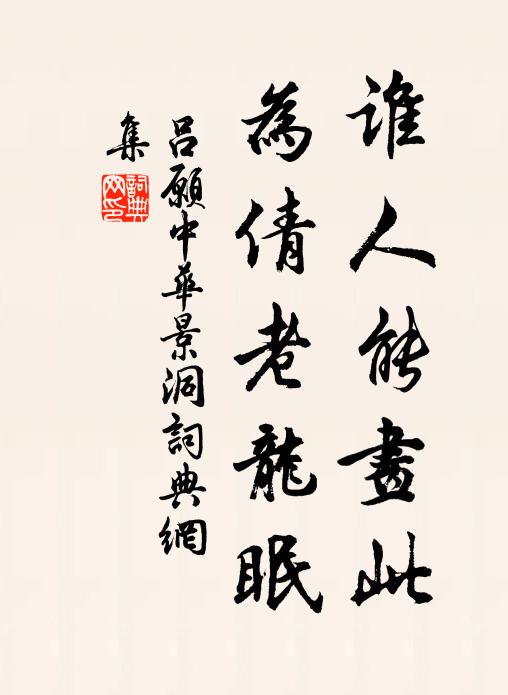 誰人能畫此
為倩老龍眠
呂願中華景洞詞典網
集
詞典網印